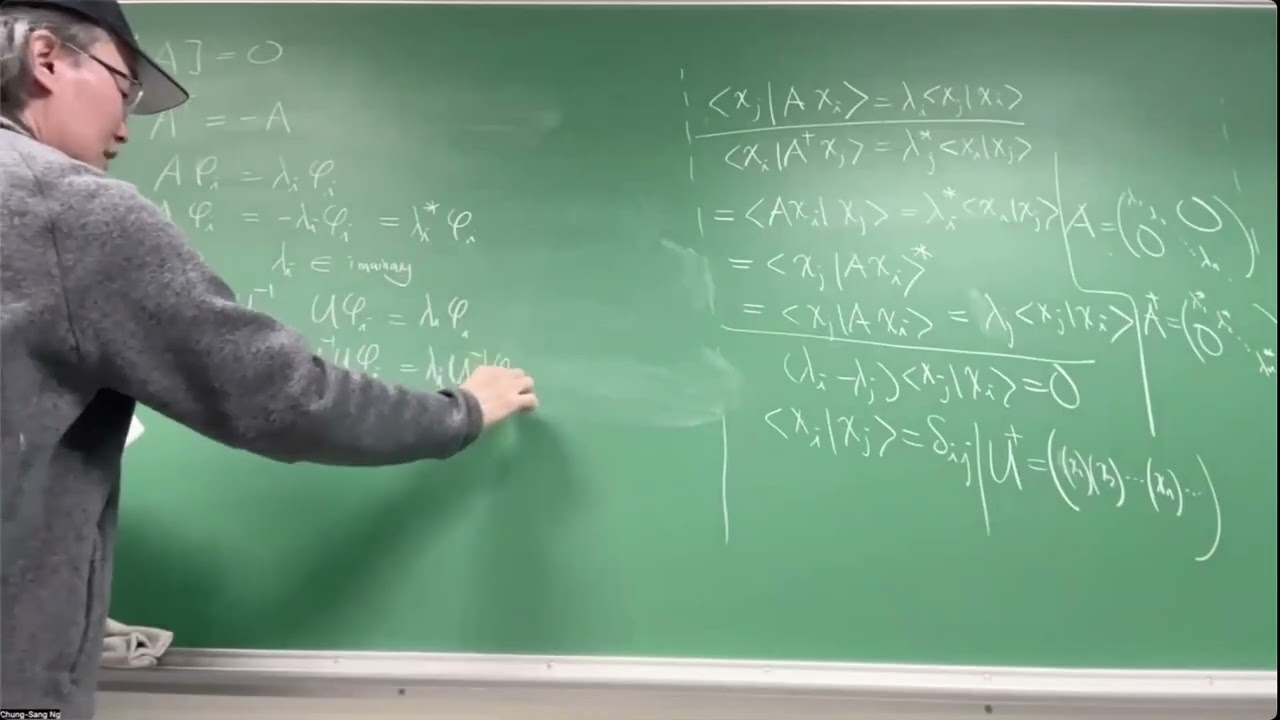 A] = 0
A = -A
Aφᵢ = λᵢφᵢ
φᵢ = -λᵢφᵢ = λᵢ*φᵢ
λᵢ ∈ imaginary
-1 Uφᵢ = λᵢφᵢ
Uφᵢ = λᵢU⁻¹φ
<xⱼ|Axᵢ> = λᵢ<xⱼ|xᵢ>
<xᵢ|A†xⱼ> = λⱼ*<xᵢ|xⱼ>
= <Axᵢ|xⱼ> = λᵢ*<xᵢ|xⱼ>
= <xⱼ|Axᵢ>*
= <xⱼ|Axᵢ> = λⱼ<xⱼ|xᵢ>
(λᵢ - λⱼ)<xⱼ|xᵢ> = 0
<xᵢ|xⱼ> = δᵢⱼ
A = (λ₁ λ₂ 0 0 ⋱ λₙ)
A† = (λ₁* λ₂* 0 ⋱ λₙ*
U† = ((x₁)(x₂)…(xₙ)…)
Chung-Sang Ng